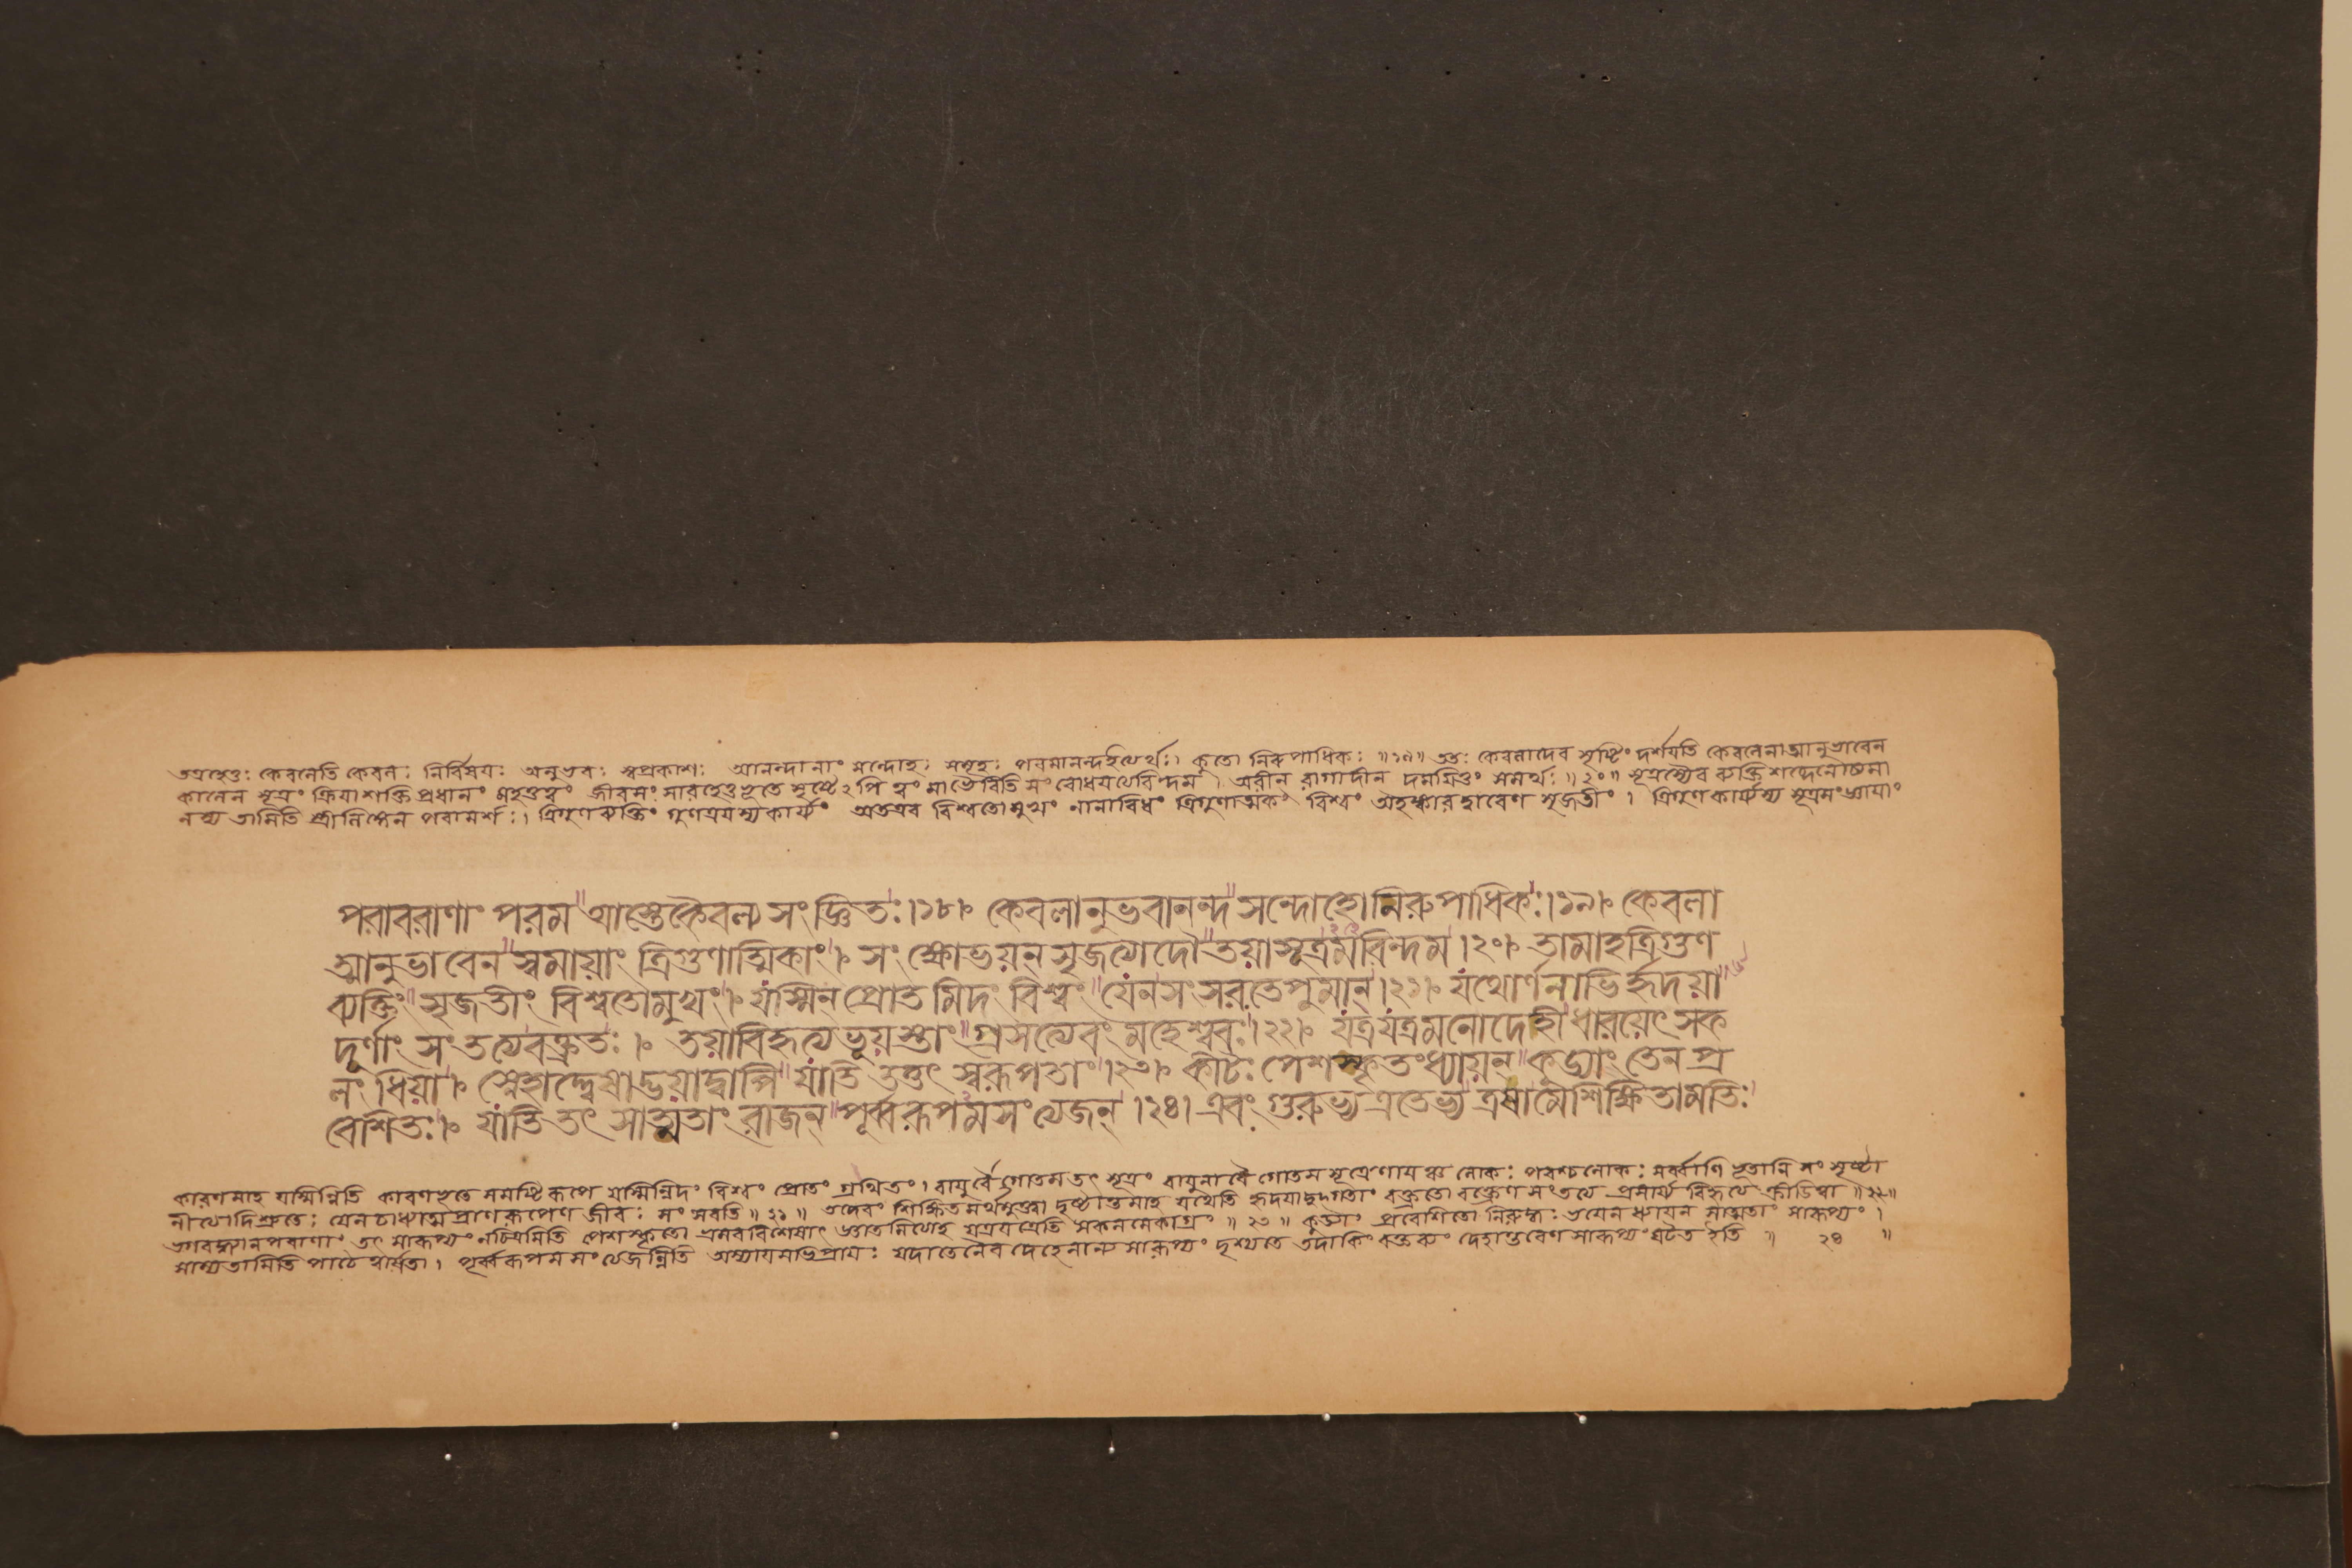 তত্রহেতুঃ কেবলেতি কেবলঃ নির্বিষয়ঃ অনুভবঃ স্বপ্রকাশঃ আনন্দানাং সন্দোহঃ সমূহঃ পরমানন্দইত্যর্থঃ। কুতো নিরুপাধিকঃ ॥১৯॥ ততঃ কেবলাদেব সৃষ্টিং দর্শয়তি কেবলেনাত্মানুভাবেন
কালেন সূত্রং ক্রিয়াশক্তিপ্রধানং মহত্তত্ত্বং জীবসংসারহেতুভূতে সৃষ্টেঽপি ত্বং মাভৈরিতি সংবোধয়ত্যরিন্দম। অরীন রাগাদীন দময়িতুং সমর্থঃ ॥২০॥ সূত্রস্যৈব ব্যক্তিশব্দেনোক্তস্য
তামিতি স্ত্রীলিঙ্গেন পরামর্শঃ। ত্রিগুণব্যক্তিং গুণত্রয়স্যকার্য্যং অতএব বিশ্বতোমুখং নানাবিধং ত্রিগুণাত্মকং বিশ্বং অহঙ্কারদ্বারেণ সৃজতীং। ত্রিগুণকার্য্যস্য সূত্রসংজ্ঞায়াং
পরাবরাণাং পরম আস্তেকৈবল্য সংজ্ঞিতঃ।১৮। কেবলানুভবানন্দ সন্দোহো নিরুপাধিকঃ।১৯। কেবলা
আনুভাবেন স্বমায়াং ত্রিগুণাত্মিকাং। সংক্ষোভয়ন্ সৃজত্যাদৌ তয়াসূত্রমরিন্দম।২০। তামাহত্রিগুণ
ব্যক্তিং সৃজতীং বিশ্বতোমুখং। যস্মিন প্রোতমিদং বিশ্বং যেনসংসরতেপুমান্।২১। যথোর্ণনাভির্হৃদয়া
দূর্ণাং সংতত্যবক্ত্রতঃ। তয়াবিহৃত্যভূয়স্তাং গ্রসত্যেবং মহেশ্বরঃ।২২। যত্রযত্রমনোদেহী ধারয়েৎ সক
লং ধিয়া। স্নেহাদ্দ্বেষাদ্ভয়াদ্বাপি যাতি তত্তৎ স্বরূপতাং।২৩। কীটঃ পেশস্কৃতংধ্যায়ন কুড্যাং তেন প্র
বেশিতঃ। যাতি তৎ সাত্মতাং রাজন্ পূর্ব্বরূপমসংত্যজন্।২৪। এবং গুরুভ্য এতেভ্য ত্রষামেশিক্ষিতামতিঃ
কারণমাহ যস্মিন্নিতি কারণভূতে সমষ্টিরূপে যস্মিন্নিদং বিশ্বং প্রোতং গ্রথিতং। বায়ুর্বৈগোতমতৎ সূত্রং বায়ুনাবৈ গোতমসূত্রেণায়ঞ্চ লোকঃ পরশ্চলোকঃ সর্ব্বাণি ভূতানি সংসৃষ্টা
নীত্যাদিশ্রুতেঃ যেনচাধ্যাত্মপ্রাণরূপেণ জীবঃ সংসরতি ॥২১॥ তদেবং শিক্ষিতমর্থমুক্ত্বা দৃষ্টান্তমাহ যথেতি হৃদয়াদুদ্গতাং বক্ত্রতো বক্ত্রেণ সংতত্য প্রসার্য্য বিহৃত্য ক্রীড়িত্বা ॥২২॥
ভগবদ্ধ্যানপরাণাং তৎ সারূপ্যং নচিত্রমিতি পেশস্কৃতো ভ্রমরবিশেষাৎ জ্ঞাতমিত্যাহ যত্রযত্রেতি সকলমেকাগ্রং ॥২৩॥ কুড্যাং প্রবেশিতো নিরুদ্ধঃ ভয়েন ধ্যায়ন সাত্মতাং সারূপ্যং।
সাম্যতামিতি পাঠে পূর্ব্বরূপমসংত্যজন্নিতি অস্যায়মভিপ্রায়ঃ যদাতেনৈব দেহেনান্য সারূপ্যং দৃশ্যতে তদাকিং বক্তব্যং দেহান্তরেণ সারূপ্যং ঘটেত ইতি ॥ ২৪ ॥